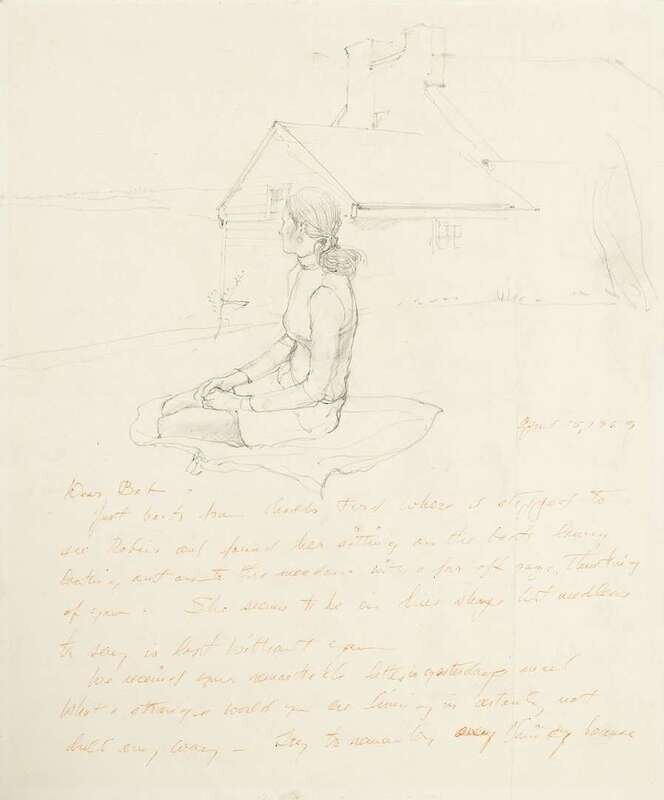 April 15, 1969
Dear Bob
Just back from Chadds Ford where I stopped to
see Robin and found her sitting on the back
looking out on to the meadow with a far off gaze, thinking
of you. She seems to be in fine shape but needless
to say is lost without you
We received your remarkable letter in yesterday's mail
What a strange world you are living in certainly not
dull any way — Try to remember every thing because